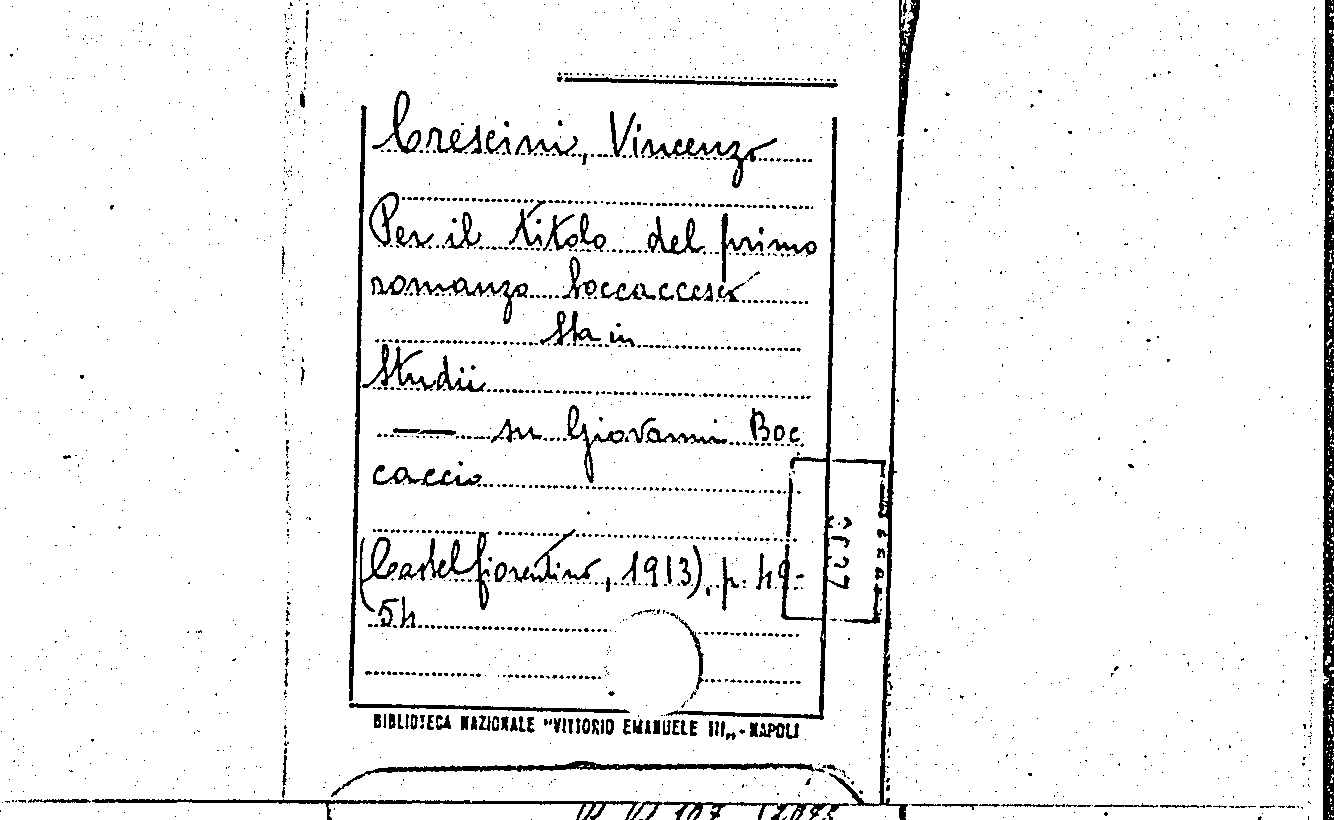 Crescini, Vincenzo
Per il titolo del primo
romanzo boccaccesco
Sta in
Studii
— su Giovanni Boc
caccio
(Castelfiorentino, 1913), p. 49-
54
BIBLIOTECA NAZIONALE "VITTORIO EMANUELE III„ - NAPOLI